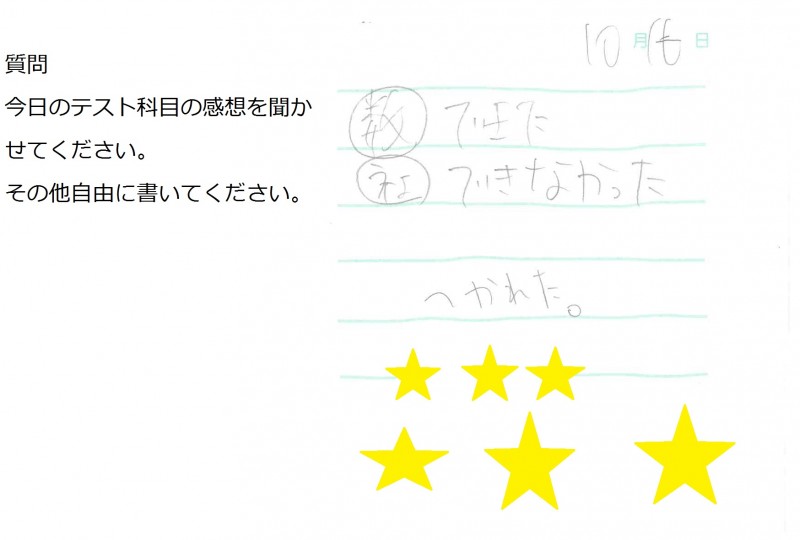 質問
今日のテスト科目の感想を聞か
せてください。
その他自由に書いてください。
10月16日
数 できた
社 できなかった
つかれた。